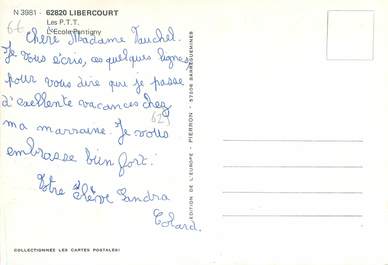 N 3981 - 62820 LIBERCOURT
Les P.T.T.
L'Ecole Pantigny
62
Chère Madame Vauchel.
Je vous écris, ces quelques lignes,
pour vous dire que je passe
d'exellente vacances chez
ma marraine. Je vous
embrasse bien fort.
Votre Élève Sandra
Colard.
629
EDITION DE L'EUROPE - PIERRON - 57206 SARREGUEMINES
COLLECTIONNEZ LES CARTES POSTALES!